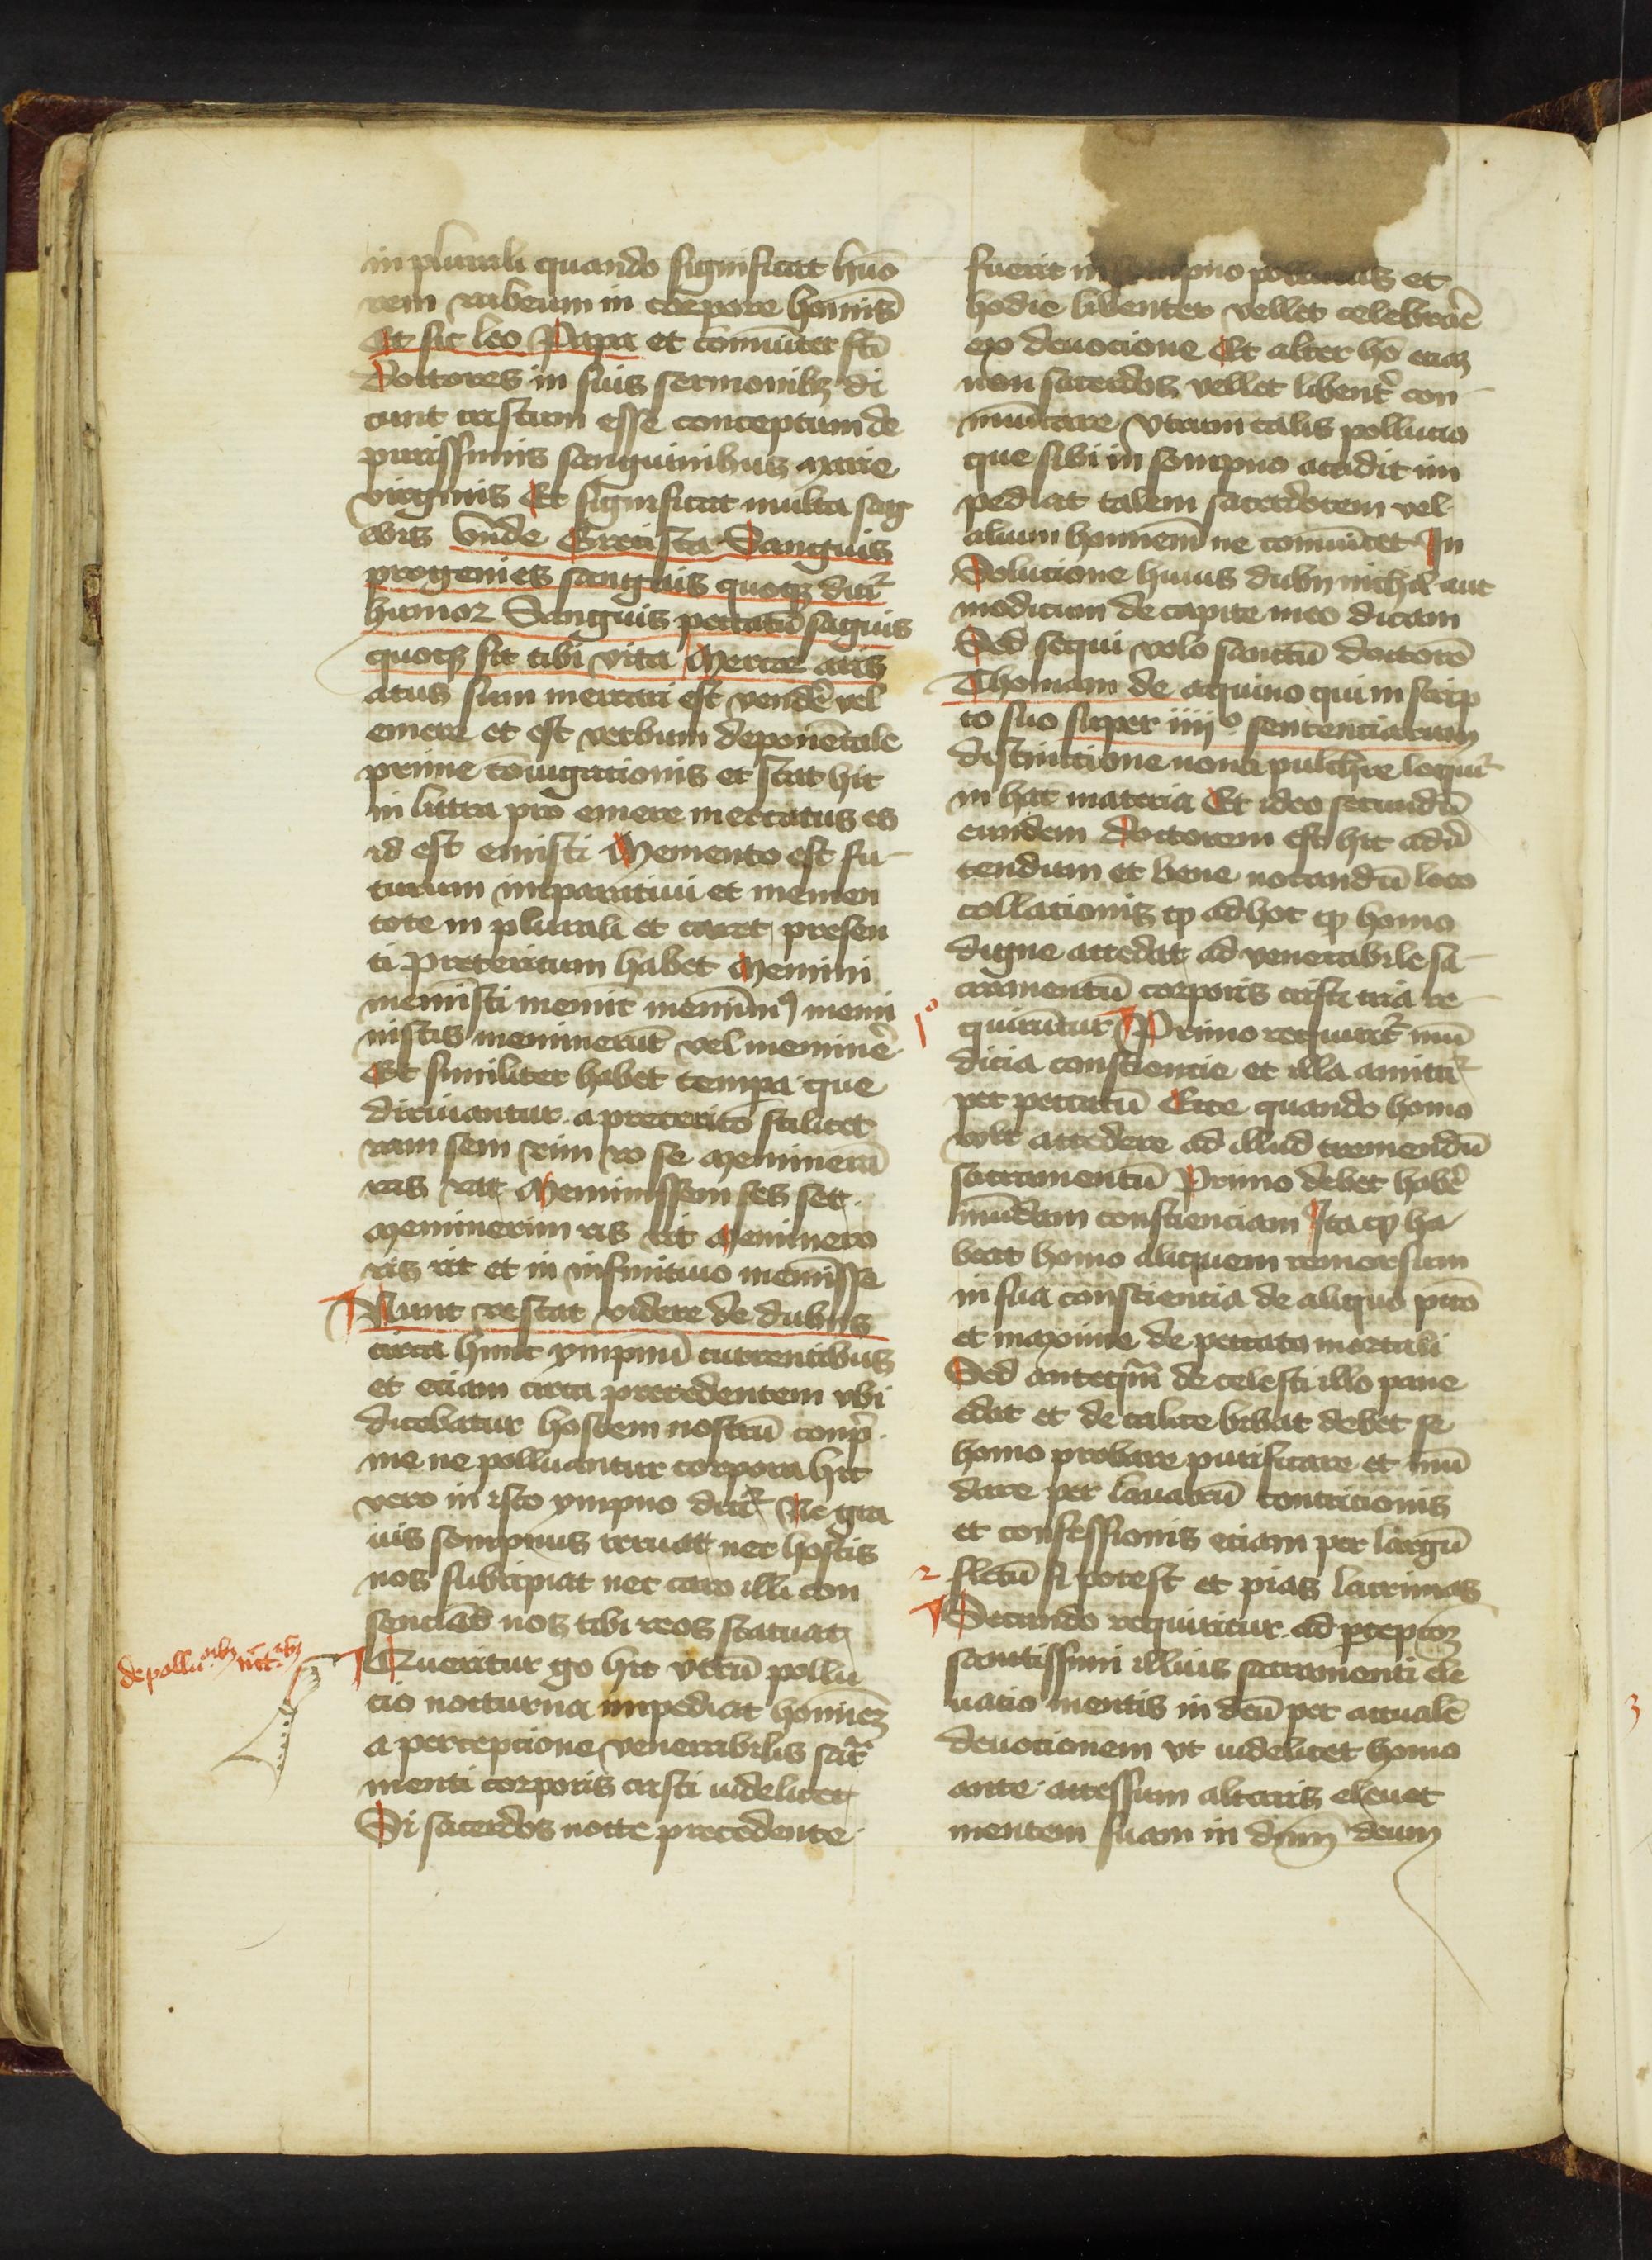 in plurali quando significat humō
rem rubeum in corpore hominis
Et sic leo Papa et comuniter scī
Doctores in suis sermonibꝫ di
cunt cristum esse conceptum de
purissimis sanguinibus marie
virginis Et significat multa sag
wis Vnde Grecista Sanguis
progenies sanguis quoqꝫ dicit᷑
humor Sanguis peccatū saguis
quoqꝫ sit tibi vita Mercor aris
atus sum mercari est vendē vel
emere et est verbum deponētale
prime coniugationis et stat hic
in littra pro emere mercatus es
id est emisti Memento est fu-
turum imparatiui et memen
tote in plurali et caret presen
ti Preteritum habet Memini
meministi meminit meminimꝰ memi
nistis meminerūt vel meminē
Et similiter habet tempa que
diriuantur a preterito scilicet
ram sem rim ro se Meminerā
ras rat Meminissem ses set
Meminerim ris rit Meminero
ris rit et in infinitiuo meminisse
Nunc restat videre de dubiis
circa hunc ympnū currentibus
et eciam circa precedentem vbi
dicebatur hostem nostrū conp̄
me ne polluantur corpora hic
vero in isto ympno dicit᷑ Ne gra
uis sompnus irruat nec hostis
nos subripiat nec caro illi con
senciens nos tibi reos statuat
de pollucōibꝫ nct̄ibꝫ
Queritur go hic vtrū pollu
cio nocturna impediat hominē
a percepcione venerabilis sacr̄a
menti corporis cristi videlicet
Si sacerdos nocte precedente
fuerit in sompno pollutus et
hodie libenter vellet celebrarē
ex deuocione Et alter hō eciaꝫ
non sacerdos vellet libentē con-
municare Vtrum talis pollucio
que sibi in sompno accidit im
pediat talem sacerdotem vel
alium hominem ne comunicet In
Solucione huius dubij nichil aut
modicum de capite meo dicam
Sed sequi volo sanctū doctorē
Thomam de aquino qui in scrip
to suo super iiijº sentenciarum
distinctione nona pulchre loquit᷑
in hac materia Et ideo secundū
eundem doctorem est hic aduer
tendum et bene notandū loco
collationis ꝙ ad hoc ꝙ homo
digne accedat ad venerabile sa-
cramentū corporis cristi tria re-
1º
quirūtur Primo requirit᷑ mū
dicia consciencie et illa amittit᷑
per peccatū Ecce quando homo
wlt accedere ad illud tremendū
sacramentū Primo debet habē
mūdam conscienciam Ita ꝙ ha
beat homo aliquem remorsum
in sua consciencia de aliquo pctō
et maxime de peccato mortali
Sed anteqm̄ de celesti illo pane
edat et de calice bibat debet se
homo probare purificare et mū
dare per lauacrū contricionis
et confessionis eciam per largū
2
fletū si potest et pias lacrimas
Secundo requiritur ad ꝑcepcōꝫ
sanctissimi illius sacramenti ele
uacio mentis in deū per actualē
deuocionem vt videlicet homo
ante accessum altaris eleuet
mentem suam in dnm̄ deum